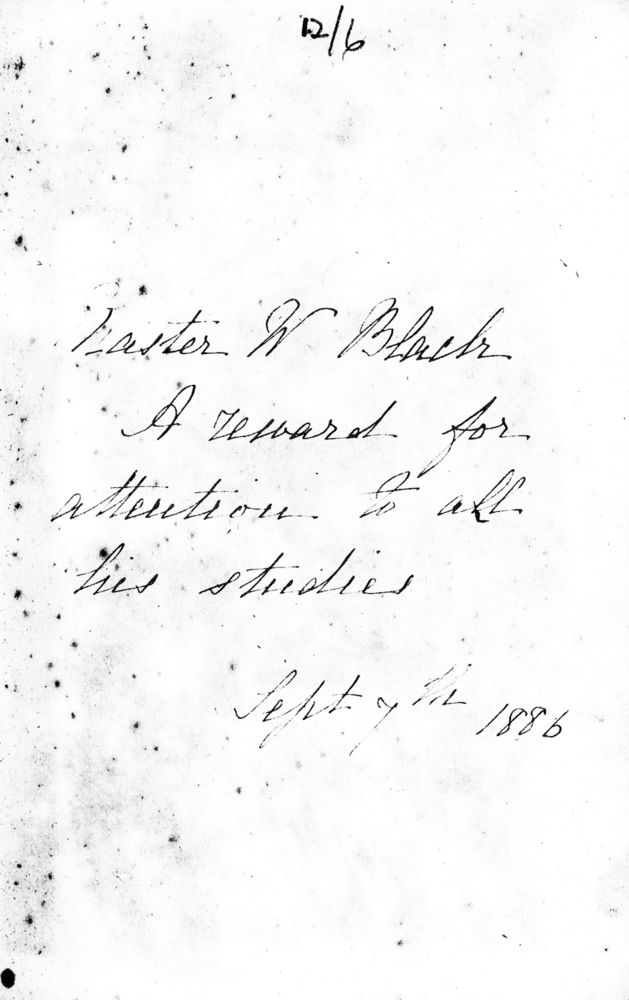 12/6
Master W Black
A reward for
attention to all
his studies
Sept 7th 1886